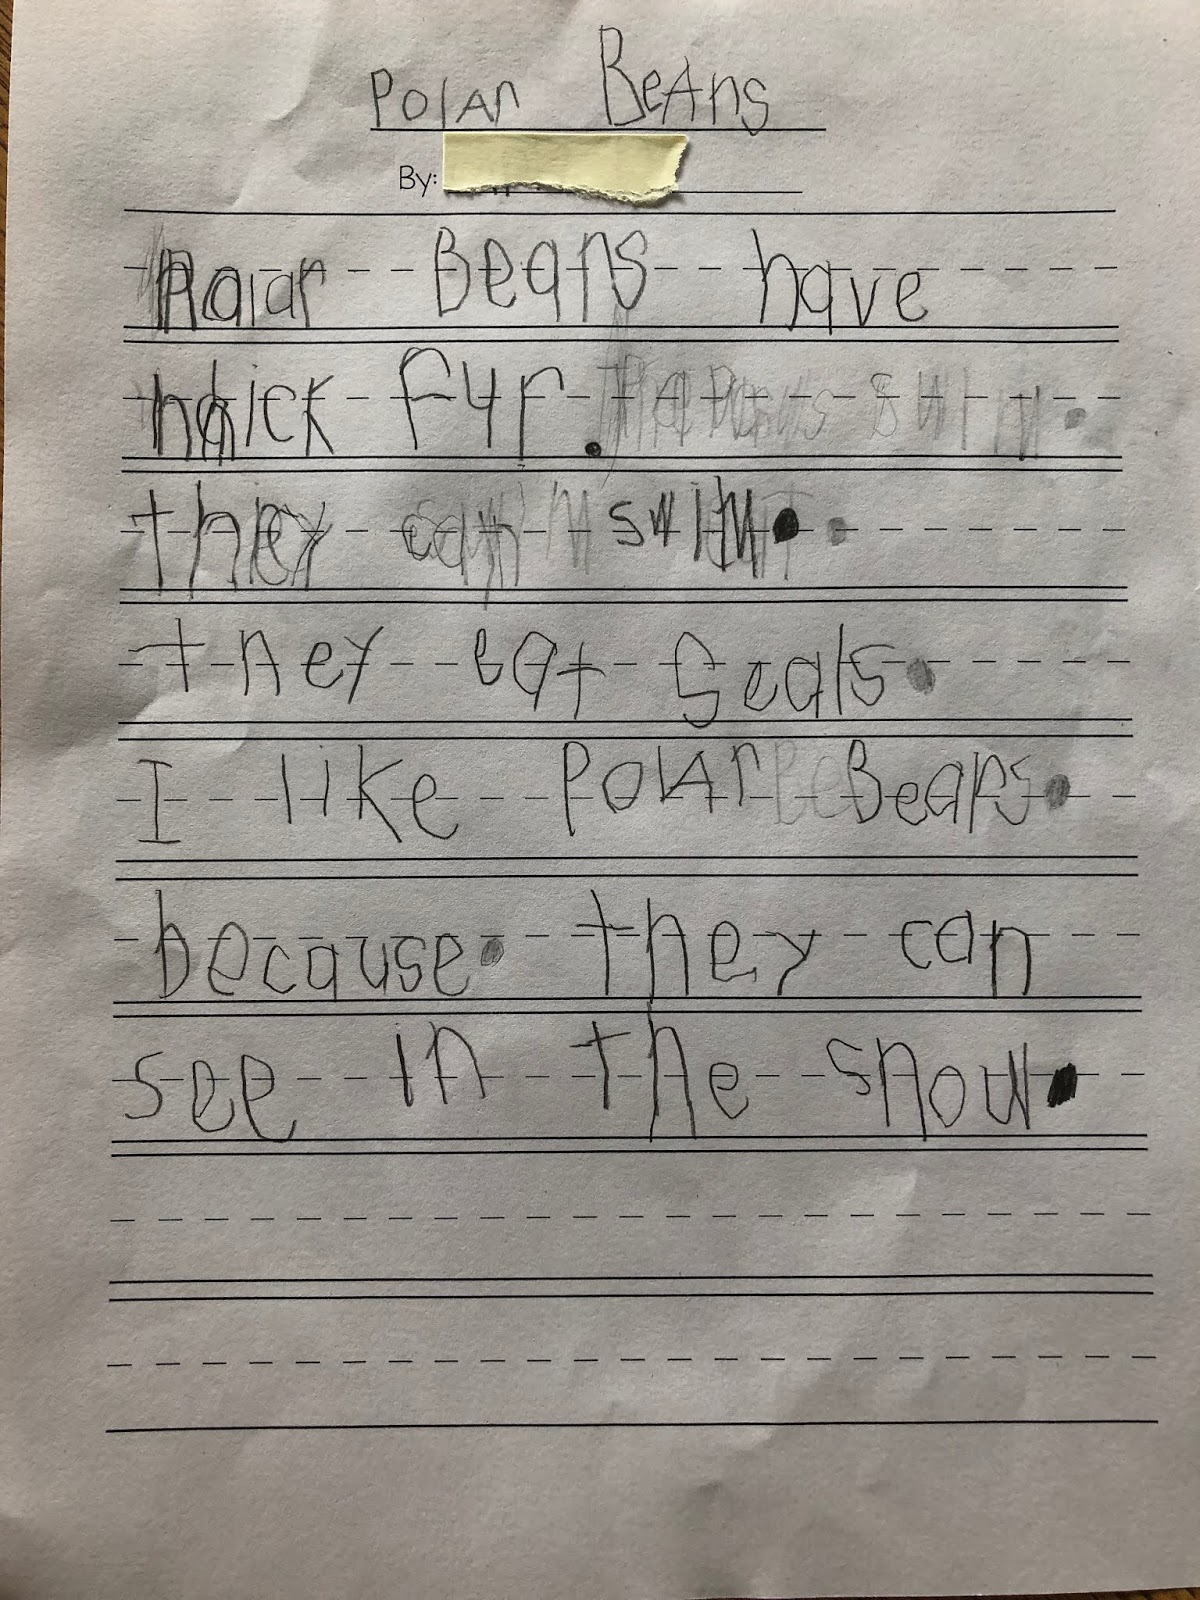 Polar Bears
By:
Polar Bears have
thick fur.
they can swim.
they eat Seals.
I like Polar Bears.
because. they can
see in the snow.